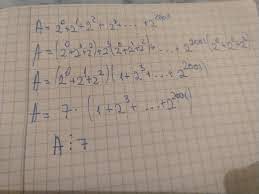 A = 2⁰+2¹+2²+2³+...+2²⁰⁰³
A = (2⁰+2¹+2²)+2³(2⁰+2¹+2²)+...+2²⁰⁰¹(2⁰+2¹+2²)
A = (2⁰+2¹+2²)(1+2³+...+2²⁰⁰¹)
A = 7·(1+2³+...+2²⁰⁰¹)
A ⋮ 7